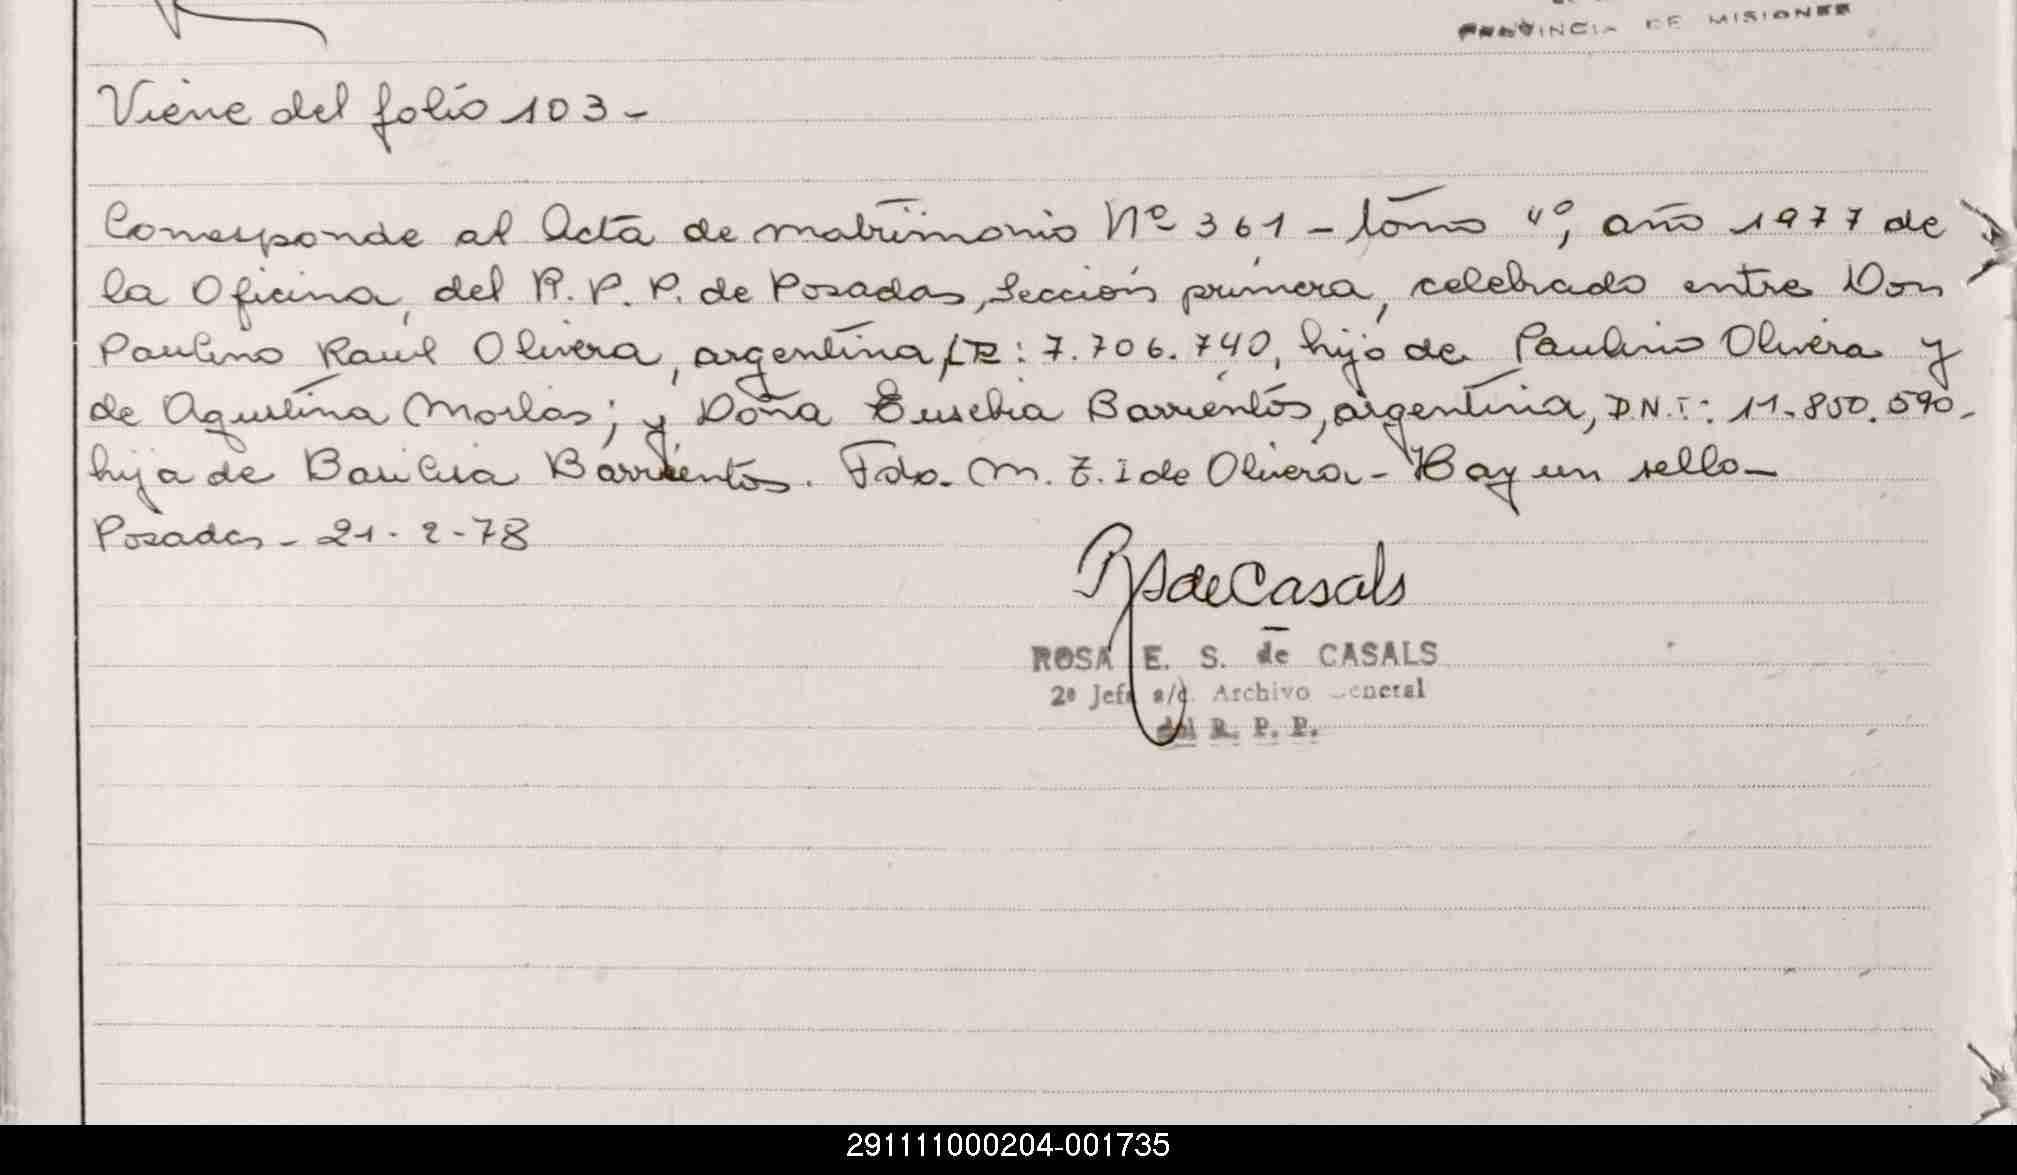 PROVINCIA DE MISIONES
Viene del folio 103-
Corresponde al Acta de matrimonio Nº 361 - tomo 4º, año 1977 de
la Oficina, del R.P.P. de Posadas, Sección primera, celebrado entre Don
Paulino Raúl Olivera, argentina, : 7.706.740, hijo de Paulino Olivera y
de Agustina Morlas; y Doña Eusebia Barrientos, argentina, D.N.I.: 11.850.590-
hija de Basilisa Barrientos. Fdo. M. Z. I de Olivera - Hay un sello-
Posadas - 21-2-78
RS de Casals
ROSA E. S. de CASALS
2º Jefe a/c. Archivo General
del R. P. P.
291111000204-001735